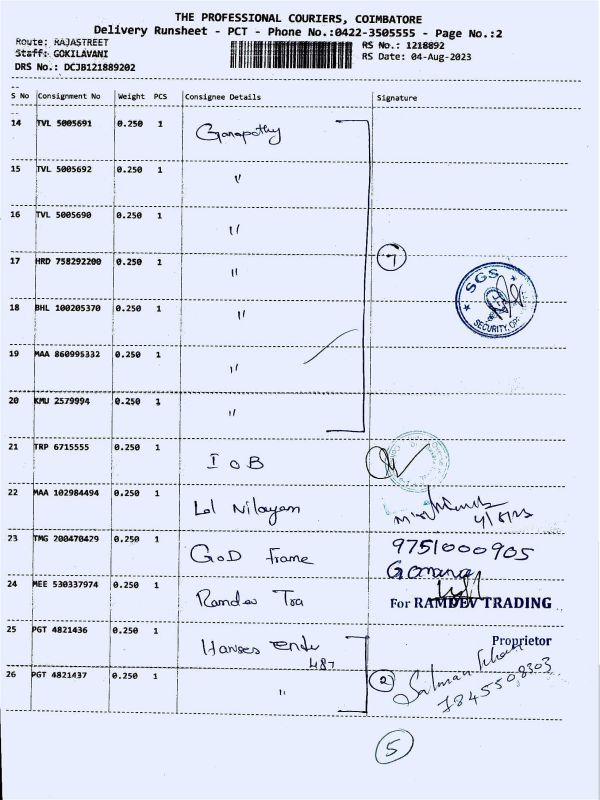 THE PROFESSIONAL COURIERS, COIMBATORE
Delivery Runsheet - PCT - Phone No.:0422-3505555 - Page No.:2
Route: RAJASTREET
Staff: GOKILAVANI
DRS No.: DCJB121889202
RS No.: 1218892
RS Date: 04-Aug-2023
S No Consignment No Weight PCS Consignee Details Signature
14 TVL 5005691 0.250 1 Ganapathy
15 TVL 5005692 0.250 1 "
16 TVL 5005690 0.250 1 "
17 HRD 758292200 0.250 1 " 7
SGS
SECURITY
18 BHL 100205370 0.250 1 "
19 MAA 860995332 0.250 1 "
20 KMU 2579994 0.250 1 "
21 TRP 6715555 0.250 1 IOB
22 MAA 102984494 0.250 1 Lal Nilayam
23 TMG 200470429 0.250 1 GOD Frame 9751000905
24 MEE 530337974 0.250 1 Ramdev Tra
For RAMDEV TRADING
Proprietor
25 PGT 4821436 0.250 1
487
26 PGT 4821437 0.250 1 " 2
Salman
7845508303
5